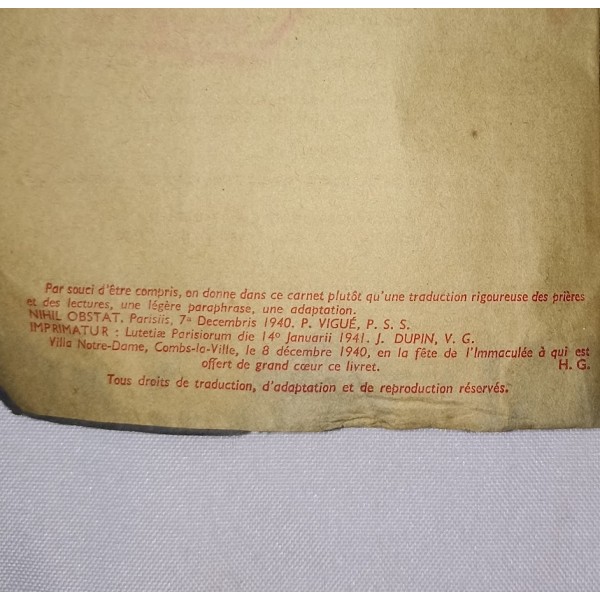 Par souci d'être compris, on donne dans ce carnet plutôt qu'une traduction rigoureuse des prières
et des lectures, une légère paraphrase, une adaptation.
NIHIL OBSTAT. Parisiis, 7ª Decembris 1940. P. VIGUÉ, P. S. S.
IMPRIMATUR : Lutetiæ Parisiorum die 14º Januarii 1941. J. DUPIN, V. G.
Villa Notre-Dame, Combs-la-Ville, le 8 décembre 1940, en la fête de l'Immaculée à qui est
offert de grand cœur ce livret. H. G.
Tous droits de traduction, d'adaptation et de reproduction réservés.